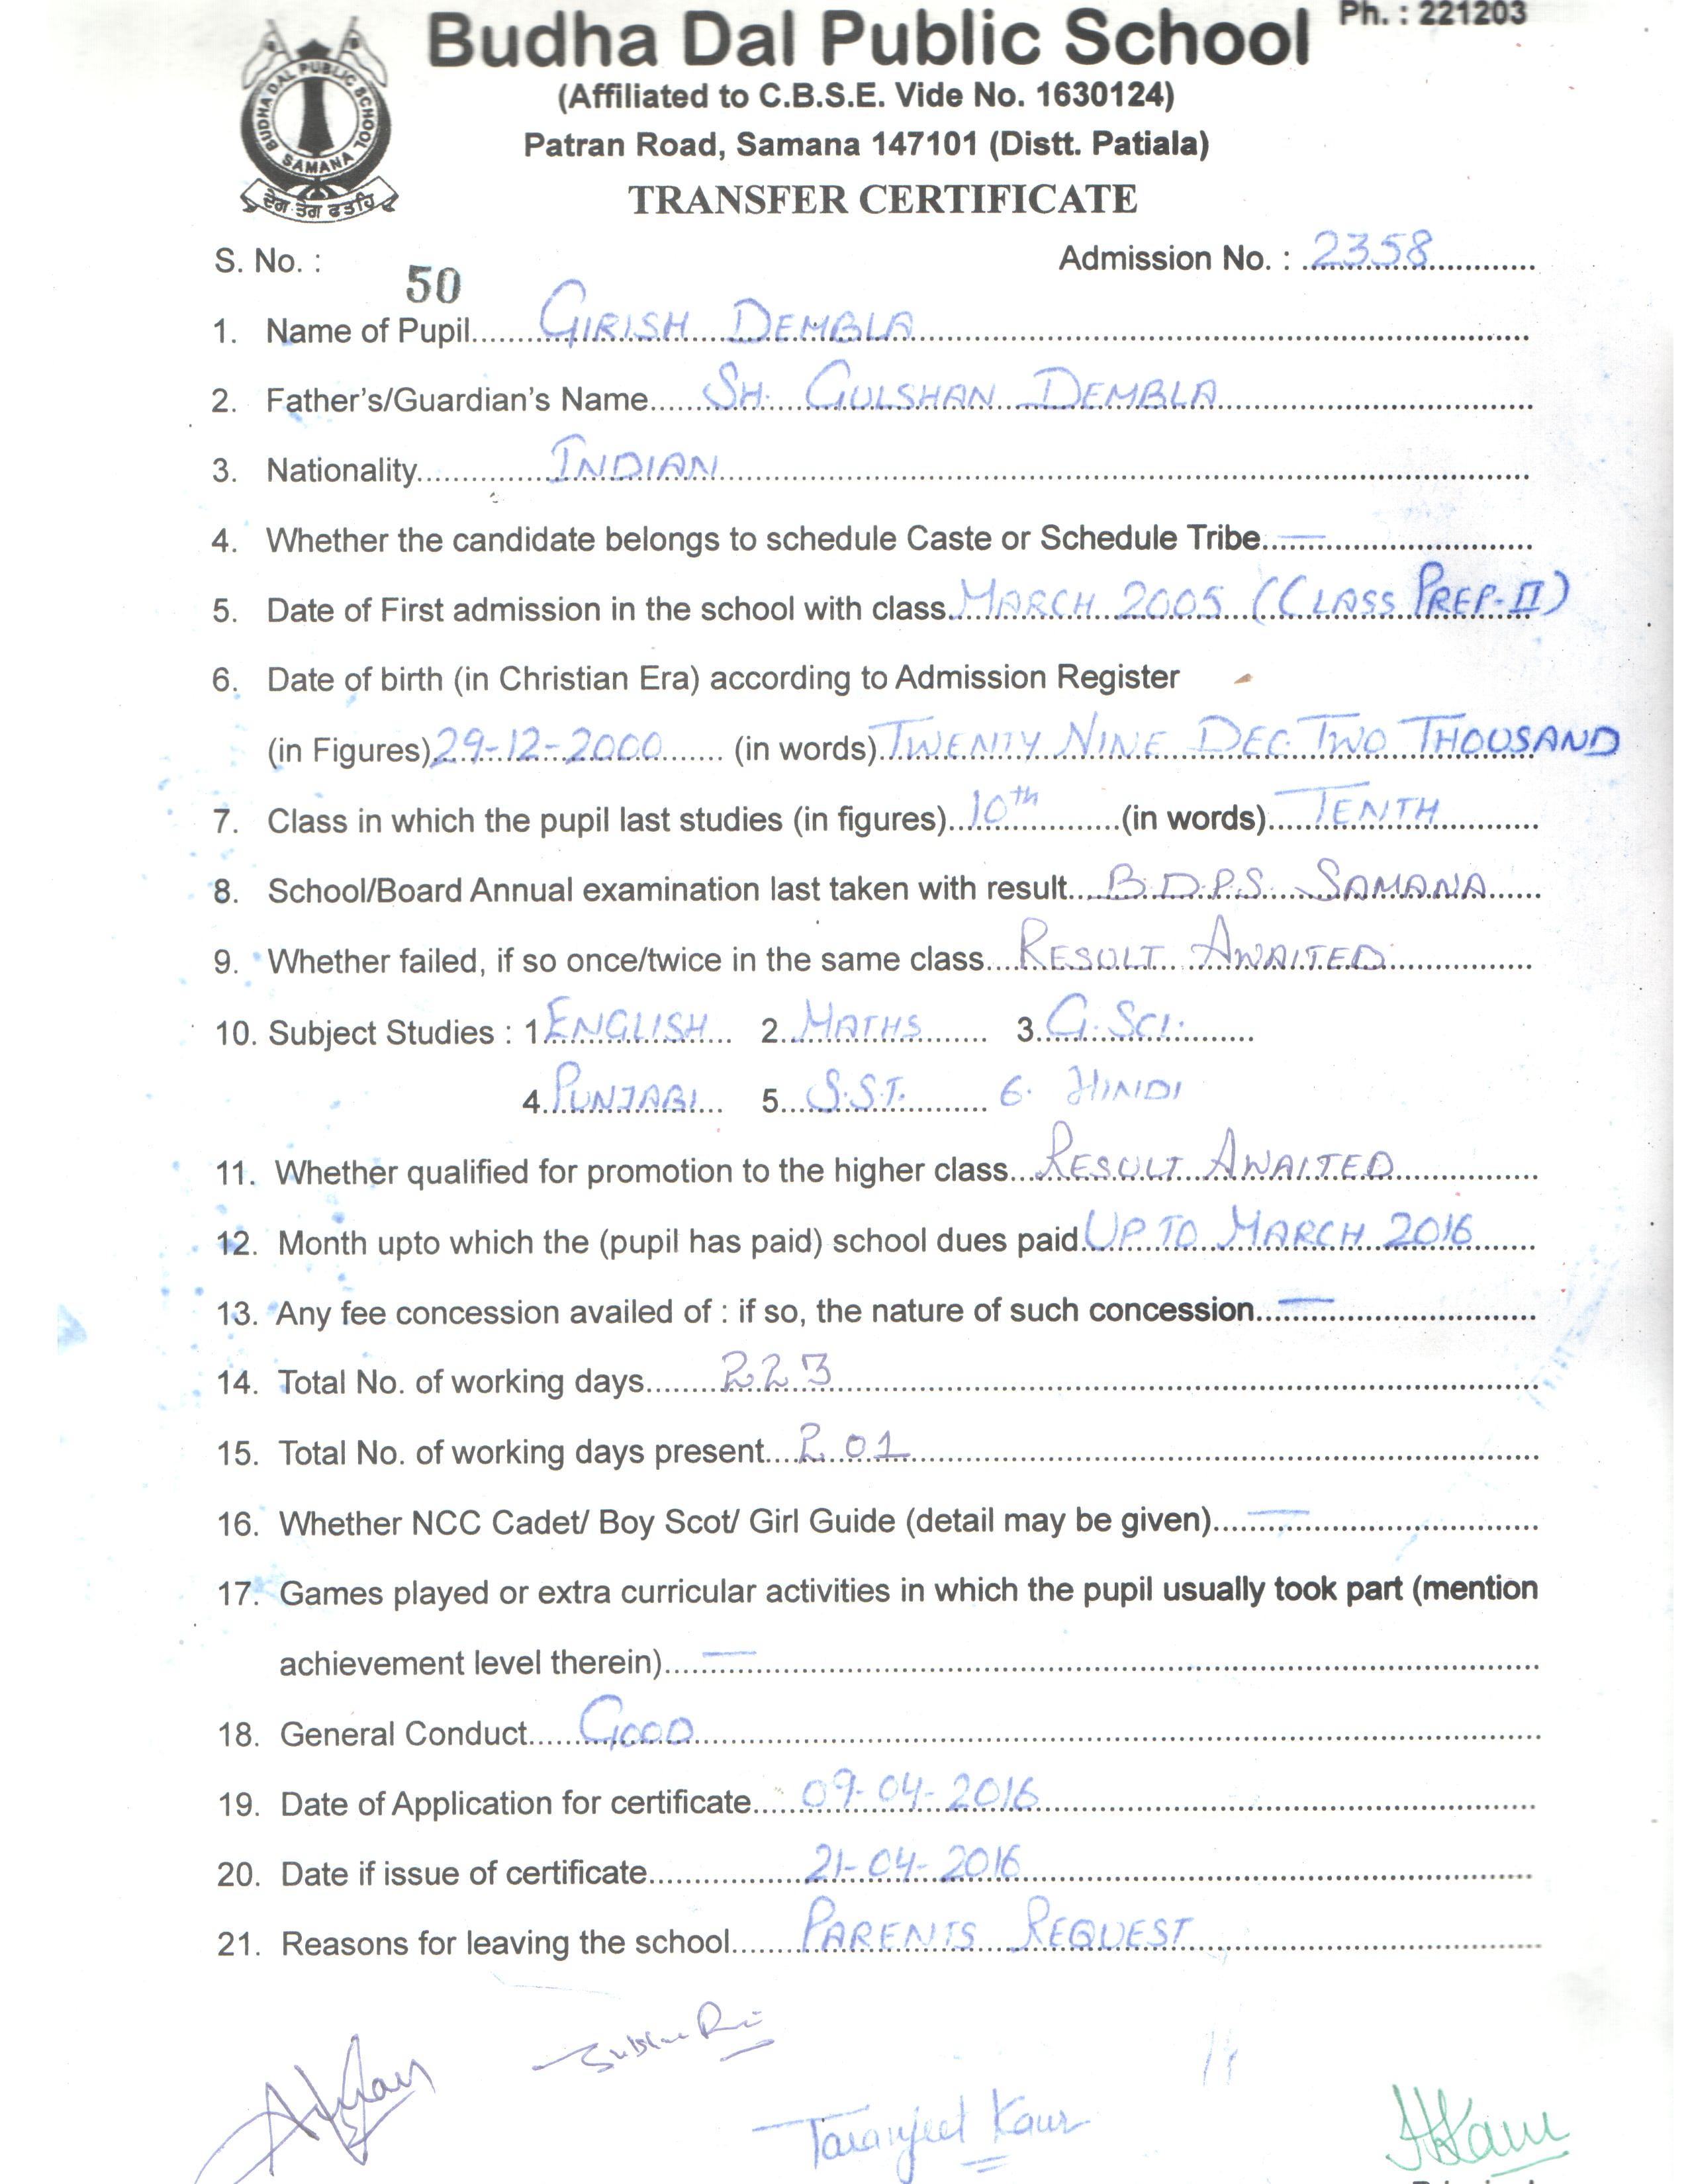 Ph. : 221203
Budha Dal Public School
(Affiliated to C.B.S.E. Vide No. 1630124)
Patran Road, Samana 147101 (Distt. Patiala)
BUDHA DAL PUBLIC SCHOOL
SAMANA
ਦੇਗ ਤੇਗ ਫਤਹਿ
TRANSFER CERTIFICATE
S. No. : 50 Admission No. : 2358
1. Name of Pupil GIRISH DEMBLA
2. Father's/Guardian's Name SH. GULSHAN DEMBLA
3. Nationality INDIAN
4. Whether the candidate belongs to schedule Caste or Schedule Tribe —
5. Date of First admission in the school with class MARCH 2005 (CLASS PREP-II)
6. Date of birth (in Christian Era) according to Admission Register
(in Figures) 29-12-2000 (in words) TWENTY NINE DEC. TWO THOUSAND
7. Class in which the pupil last studies (in figures) 10th (in words) TENTH
8. School/Board Annual examination last taken with result B.D.P.S. SAMANA
9. Whether failed, if so once/twice in the same class RESULT AWAITED
10. Subject Studies : 1 ENGLISH 2. MATHS 3. G. SCI.
4. PUNJABI 5. S.ST. 6. HINDI
11. Whether qualified for promotion to the higher class RESULT AWAITED
12. Month upto which the (pupil has paid) school dues paid UP TO MARCH 2016
13. Any fee concession availed of : if so, the nature of such concession —
14. Total No. of working days 223
15. Total No. of working days present 201
16. Whether NCC Cadet/ Boy Scot/ Girl Guide (detail may be given) —
17. Games played or extra curricular activities in which the pupil usually took part (mention
achievement level therein) —
18. General Conduct GOOD
19. Date of Application for certificate 09-04-2016
20. Date if issue of certificate 21-04-2016
21. Reasons for leaving the school PARENTS REQUEST
Taranjeet Kaur